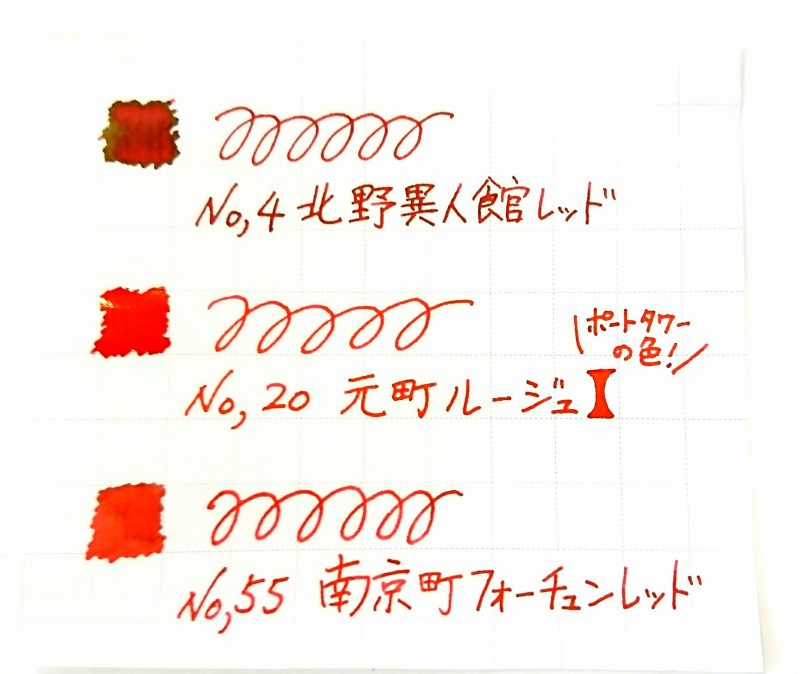 No,4 北野異人館レッド
\ポートタワー
の色!/
No,20 元町ルージュ
No,55 南京町フォーチュンレッド